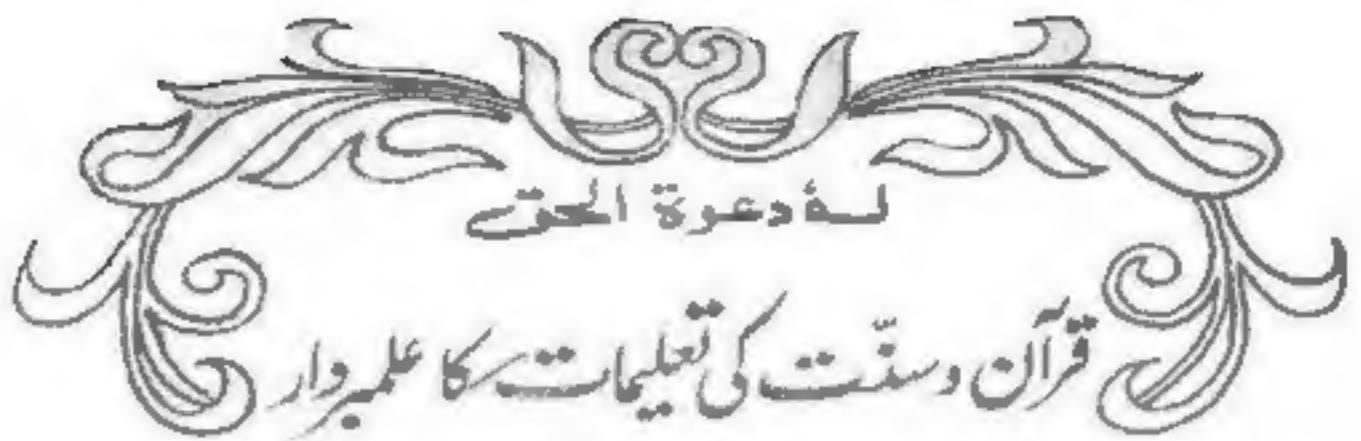 لہٗ دعوۃ الحق
قرآن و سنّت کی تعلیمات کا علمبردار